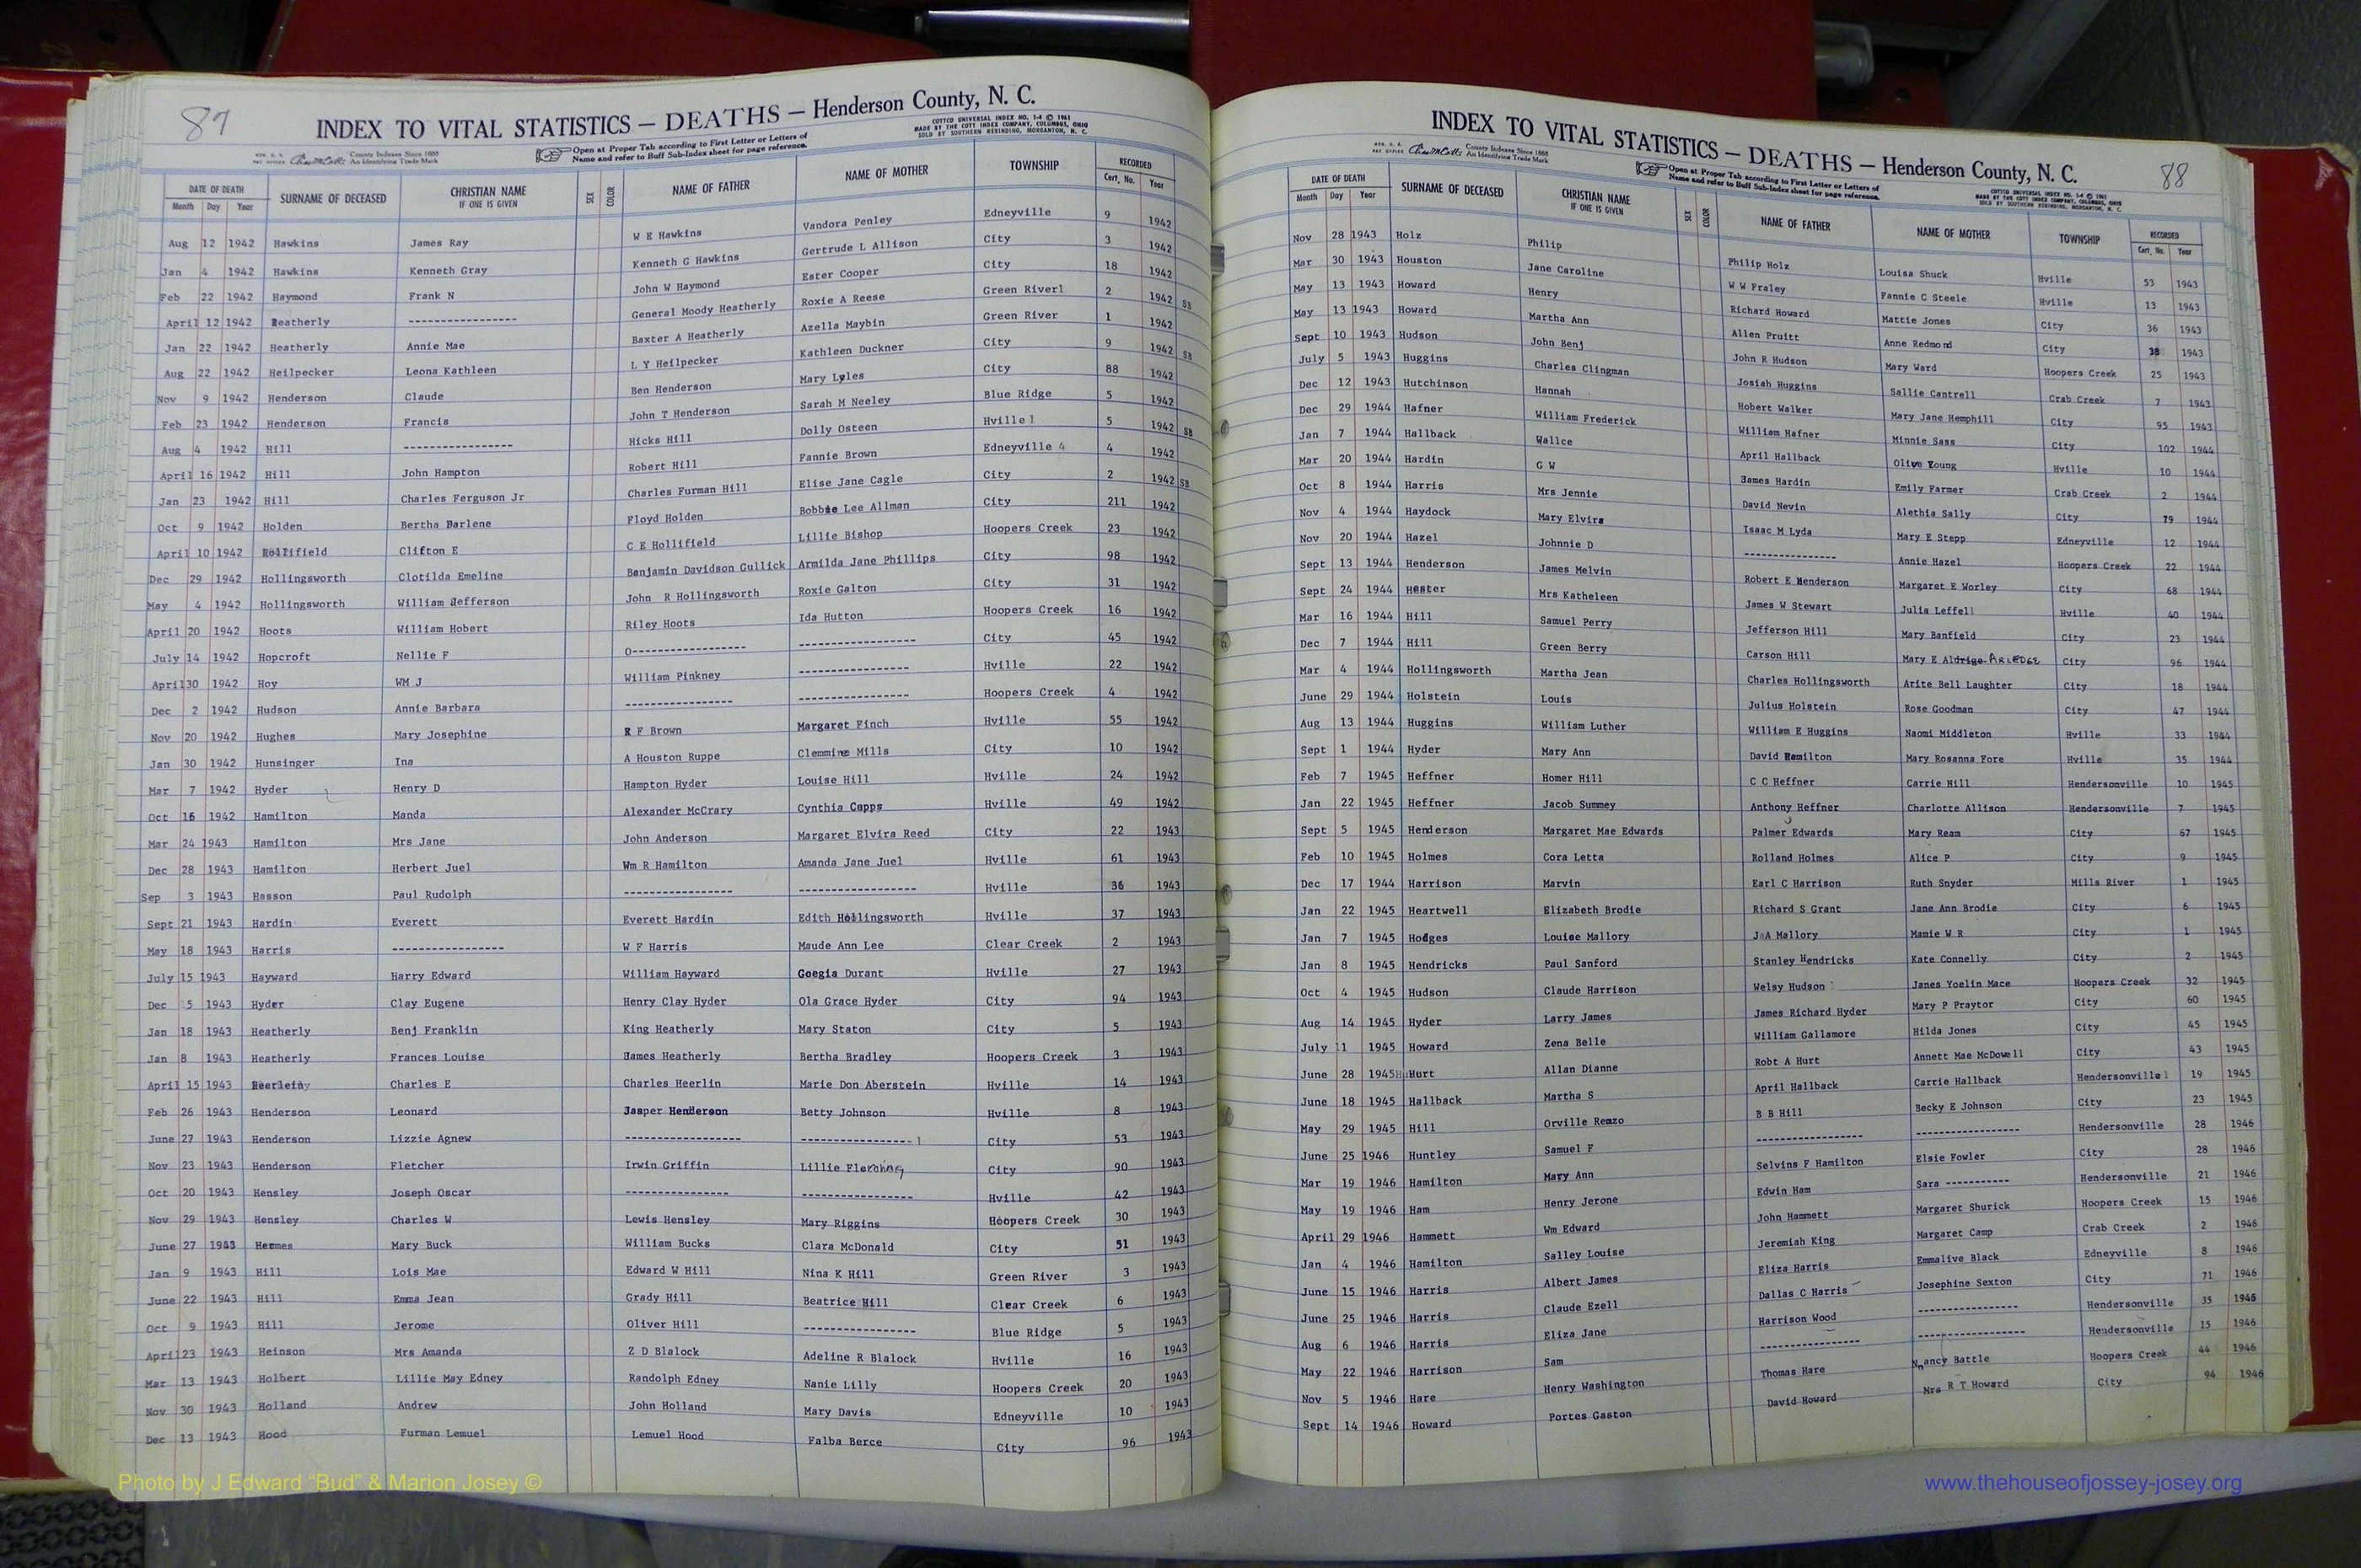 87
INDEX TO VITAL STATISTICS — DEATHS — Henderson County, N. C.
County Indexes Since 1888
An Identifying Trade Mark
Open at Proper Tab according to First Letter or Letters of
Name and refer to Buff Sub-Index sheet for page reference.
COTTCO UNIVERSAL INDEX NO. 1-4 © 1961
MADE BY THE COTT INDEX COMPANY, COLUMBUS, OHIO
SOLD BY SOUTHERN REBINDING, MORGANTON, N. C.
DATE OF DEATH SURNAME OF DECEASED CHRISTIAN NAME SEX COLOR NAME OF FATHER NAME OF MOTHER TOWNSHIP RECORDED
Month Day Year IF ONE IS GIVEN Cert. No. Year
Aug 12 1942 Hawkins James Ray W E Hawkins Vandora Penley Edneyville 9 1942
Jan 4 1942 Hawkins Kenneth Gray Kenneth G Hawkins Gertrude L Allison City 3 1942
Feb 22 1942 Haymond Frank N John W Haymond Ester Cooper City 18 1942
April 12 1942 Heatherly ---------------- General Moody Heatherly Roxie A Reese Green River1 2 1942 SB
Jan 22 1942 Heatherly Annie Mae Baxter A Heatherly Azella Maybin Green River 1 1942
Aug 22 1942 Heilpecker Leona Kathleen L Y Heilpecker Kathleen Duckner City 9 1942 SB
Nov 9 1942 Henderson Claude Ben Henderson Mary Lyles City 88 1942
Feb 23 1942 Henderson Francis John T Henderson Sarah M Neeley Blue Ridge 5 1942
Aug 4 1942 Hill ---------------- Hicks Hill Dolly Osteen Hville 1 5 1942 SB
April 16 1942 Hill John Hampton Robert Hill Fannie Brown Edneyville 4 4 1942
Jan 23 1942 Hill Charles Ferguson Jr Charles Furman Hill Elise Jane Cagle City 2 1942 SB
Oct 9 1942 Holden Bertha Darlene Floyd Holden Bobbie Lee Allman City 211 1942
April 10 1942 Hollifield Clifton E C E Hollifield Lillie Bishop Hoopers Creek 23 1942
Dec 29 1942 Hollingsworth Clotilda Emeline Benjamin Davidson Gullick Armilda Jane Phillips City 98 1942
May 4 1942 Hollingsworth William Jefferson John R Hollingsworth Roxie Galton City 31 1942
April 20 1942 Hoots William Hobert Riley Hoots Ida Hutton Hoopers Creek 16 1942
July 14 1942 Hopcroft Nellie F O---------------- ---------------- City 45 1942
April 30 1942 Hoy WM J William Pinkney ---------------- Hville 22 1942
Dec 2 1942 Hudson Annie Barbara ---------------- ---------------- Hoopers Creek 4 1942
Nov 20 1942 Hughes Mary Josephine R F Brown Margaret Finch Hville 55 1942
Jan 30 1942 Hunsinger Ina A Houston Ruppe Clemmine Mills City 10 1942
Mar 7 1942 Hyder Henry D Hampton Hyder Louise Hill Hville 24 1942
Oct 16 1942 Hamilton Manda Alexander McCrary Cynthia Capps Hville 49 1942
Mar 24 1943 Hamilton Mrs Jane John Anderson Margaret Elvira Reed City 22 1943
Dec 28 1943 Hamilton Herbert Juel Wm R Hamilton Amanda Jane Juel Hville 61 1943
Sep 3 1943 Hasson Paul Rudolph ---------------- ---------------- Hville 36 1943
Sept 21 1943 Hardin Everett Everett Hardin Edith Hollingsworth Hville 37 1943
May 18 1943 Harris ---------------- W F Harris Maude Ann Lee Clear Creek 2 1943
July 15 1943 Hayward Harry Edward William Hayward Goegia Durant Hville 27 1943
Dec 5 1943 Hyder Clay Eugene Henry Clay Hyder Ola Grace Hyder City 94 1943
Jan 18 1943 Heatherly Benj Franklin King Heatherly Mary Staton City 5 1943
Jan 8 1943 Heatherly Frances Louise James Heatherly Bertha Bradley Hoopers Creek 3 1943
April 15 1943 Charles E Charles Heerlin Marie Don Aberstein Hville 14 1943
Feb 26 1943 Henderson Leonard Jasper Henderson Betty Johnson Hville 8 1943
June 27 1943 Henderson Lizzie Agnew ---------------- ---------------- City 53 1943
Nov 23 1943 Henderson Fletcher Irwin Griffin Lillie City 90 1943
Oct 20 1943 Hensley Joseph Oscar ---------------- ---------------- Hville 42 1943
Nov 29 1943 Hensley Charles W Lewis Hensley Mary Riggins Hoopers Creek 30 1943
June 27 1943 Hermes Mary Buck William Bucks Clara McDonald City 51 1943
Jan 9 1943 Hill Lois Mae Edward W Hill Nina K Hill Green River 3 1943
June 22 1943 Hill Emma Jean Grady Hill Beatrice Hill Clear Creek 6 1943
Oct 9 1943 Hill Jerome Oliver Hill ---------------- Blue Ridge 5 1943
April 23 1943 Heinson Mrs Amanda Z D Blalock Adeline R Blalock Hville 16 1943
Mar 13 1943 Holbert Lillie May Edney Randolph Edney Nanie Lilly Hoopers Creek 20 1943
Nov 30 1943 Holland Andrew John Holland Mary Davis Edneyville 10 1943
Dec 13 1943 Hood Furman Lemuel Lemuel Hood Falba Berce City 96 1943
88
INDEX TO VITAL STATISTICS — DEATHS — Henderson County, N. C.
County Indexes Since 1888
An Identifying Trade Mark
Open at Proper Tab according to First Letter or Letters of
Name and refer to Buff Sub-Index sheet for page reference.
COTTCO UNIVERSAL INDEX NO. 1-4 © 1961
MADE BY THE COTT INDEX COMPANY, COLUMBUS, OHIO
SOLD BY SOUTHERN REBINDING, MORGANTON, N. C.
DATE OF DEATH SURNAME OF DECEASED CHRISTIAN NAME SEX COLOR NAME OF FATHER NAME OF MOTHER TOWNSHIP RECORDED
Month Day Year IF ONE IS GIVEN Cert. No. Year
Nov 28 1943 Holz Philip Philip Holz Louisa Shuck Hville 53 1943
Mar 30 1943 Houston Jane Caroline W W Fraley Fannie C Steele Hville 13 1943
May 13 1943 Howard Henry Richard Howard Mattie Jones City 36 1943
May 13 1943 Howard Martha Ann Allen Pruitt Anne Redmond City 38 1943
Sept 10 1943 Hudson John Benj John R Hudson Mary Ward Hoopers Creek 25 1943
July 5 1943 Huggins Charles Clingman Josiah Huggins Sallie Cantrell Crab Creek 7 1943
Dec 12 1943 Hutchinson Hannah Hobert Walker Mary Jane Hemphill City 95 1943
Dec 29 1944 Hafner William Frederick William Hafner Minnie Sass City 102 1944
Jan 7 1944 Hallback Wallce April Hallback Olive Young Hville 10 1944
Mar 20 1944 Hardin G W James Hardin Emily Farmer Crab Creek 2 1944
Oct 8 1944 Harris Mrs Jennie David Nevin Alethia Sally City 79 1944
Nov 4 1944 Haydock Mary Elvira Isaac M Lyda Mary E Stepp Edneyville 12 1944
Nov 20 1944 Hazel Johnnie D ---------------- Annie Hazel Hoopers Creek 22 1944
Sept 13 1944 Henderson James Melvin Robert E Henderson Margaret E Worley City 68 1944
Sept 24 1944 Hester Mrs Katheleen James W Stewart Julia Leffell Hville 40 1944
Mar 16 1944 Hill Samuel Perry Jefferson Hill Mary Banfield City 23 1944
Dec 7 1944 Hill Green Berry Carson Hill Mary E Aldrige ARLEDGE City 96 1944
Mar 4 1944 Hollingsworth Martha Jean Charles Hollingsworth Arite Bell Laughter City 18 1944
June 29 1944 Holstein Louis Julius Holstein Rose Goodman City 47 1944
Aug 13 1944 Huggins William Luther William E Huggins Naomi Middleton Hville 33 1944
Sept 1 1944 Hyder Mary Ann David Hamilton Mary Rosanna Fore Hville 35 1944
Feb 7 1945 Heffner Homer Hill C C Heffner Carrie Hill Hendersonville 10 1945
Jan 22 1945 Heffner Jacob Summey Anthony Heffner Charlotte Allison Hendersonville 7 1945
Sept 5 1945 Henderson Margaret Mae Edwards Palmer Edwards Mary Ream City 67 1945
Feb 10 1945 Holmes Cora Letta Rolland Holmes Alice P City 9 1945
Dec 17 1944 Harrison Marvin Earl C Harrison Ruth Snyder Mills River 1 1945
Jan 22 1945 Heartwell Elizabeth Brodie Richard S Grant Jane Ann Brodie City 6 1945
Jan 7 1945 Hodges Louise Mallory J A Mallory Mamie W R City 1 1945
Jan 8 1945 Hendricks Paul Sanford Stanley Hendricks Kate Connelly City 2 1945
Oct 4 1945 Hudson Claude Harrison Welsy Hudson Janes Yoelin Mace Hoopers Creek 32 1945
Aug 14 1945 Hyder Larry James James Richard Hyder Mary P Praytor City 60 1945
July 11 1945 Howard Zena Belle William Gallamore Hilda Jones City 45 1945
June 28 1945 Hurt Allan Dianne Robt A Hurt Annett Mae McDowell City 43 1945
June 18 1945 Hallback Martha S April Hallback Carrie Hallback Hendersonville 1 19 1945
May 29 1945 Hill Orville Renzo B B Hill Becky E Johnson City 23 1945
June 25 1946 Huntley Samuel F ---------------- ---------------- Hendersonville 28 1946
Mar 19 1946 Hamilton Mary Ann Selvins F Hamilton Elsie Fowler City 28 1946
May 19 1946 Ham Henry Jerone Edwin Ham Sara ---------- Hendersonville 21 1946
April 29 1946 Hammett Wm Edward John Hammett Margaret Shurick Hoopers Creek 15 1946
Jan 4 1946 Hamilton Salley Louise Jeremiah King Margaret Camp Crab Creek 2 1946
June 15 1946 Harris Albert James Eliza Harris Emmalive Black Edneyville 8 1946
June 25 1946 Harris Claude Ezell Dallas C Harris Josephine Sexton City 71 1946
Aug 6 1946 Harris Eliza Jane Harrison Wood ---------------- Hendersonville 35 1946
May 22 1946 Harrison Sam ---------------- ---------------- Hendersonville 15 1946
Nov 5 1946 Hare Henry Washington Thomas Hare Nancy Battle Hoopers Creek 44 1946
Sept 14 1946 Howard Portes Gaston David Howard Mrs R T Howard City 94 1946
Photo by J Edward “Bud” & Marion Josey ©
www.thehouseofjossey-josey.org